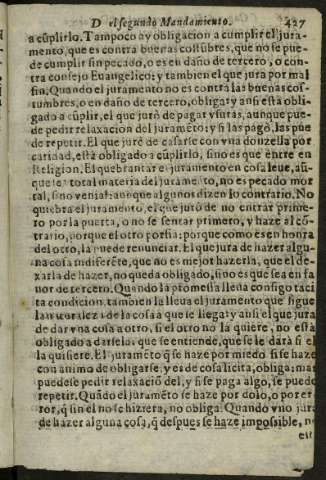 Del segundo Mandamiento. 427
a cũplirlo. Tampoco ay obligacion a cumplir el jura-
mento, que es contra buenas costũbres, que no se pue-
de cumplir sin pecado, o es en daño de tercero, o con-
tra consejo Euangelico: y tambien el que jura por mal
fin. Quando el juramento no es contra las buenas cos-
tumbres, o en daño de tercero, obliga: y ansi està obli-
gado a cũplir, el que jurò de pagar vsuras, aunque pue-
de pedir relaxacion del juramẽto: y si las pagò, las pue
de repetir. El que jurò de casarse con vna donzella por
caridad, està obligado a cũplirlo, sino es que entre en
Religion. El quebrantar el juramento en cosa leue, aũ-
que sea total materia del juramẽto, no es pecado mor
tal, sino venial: aunque algunos dizen lo contrario. No
quiebra el juramento, el que jurò de no entrar prime-
ro por la puerta, o no se sentar primero, y haze al cõ-
trario, porque el otro porfia: porque como es en honra
del otro, la puede renunciar. El que jura de hazer algu-
na cosa indiferẽte, que no es mejor hazerla, que el de-
xarla de hazer, no queda obligado, sino es que sea en fa
uor de tercero. Quando la promessa lleua consigo taci
ta condicion, tambien la lleua el juramento que sigue
la naturaleza de la cosa a que se llega: y ansi el que jura
de dar vna cosa a otro, si el otro no la quiere, no està
obligado a darsela: que se entiende, que se le darà si el
la quisiere. El juramẽto q̃ se haze por miedo si se haze
con animo de obligarse, y es de cosa licita, obliga; mas
puedese pedir relaxaciõ del, y si se paga algo, se puede
repetir. Quãdo el juramẽto se haze por dolo, o por er-
ror, q̃ sin el no se hiziera, no obliga. Quando vno jura
de hazer alguna cosa, q̃ despues se haze impossible, no